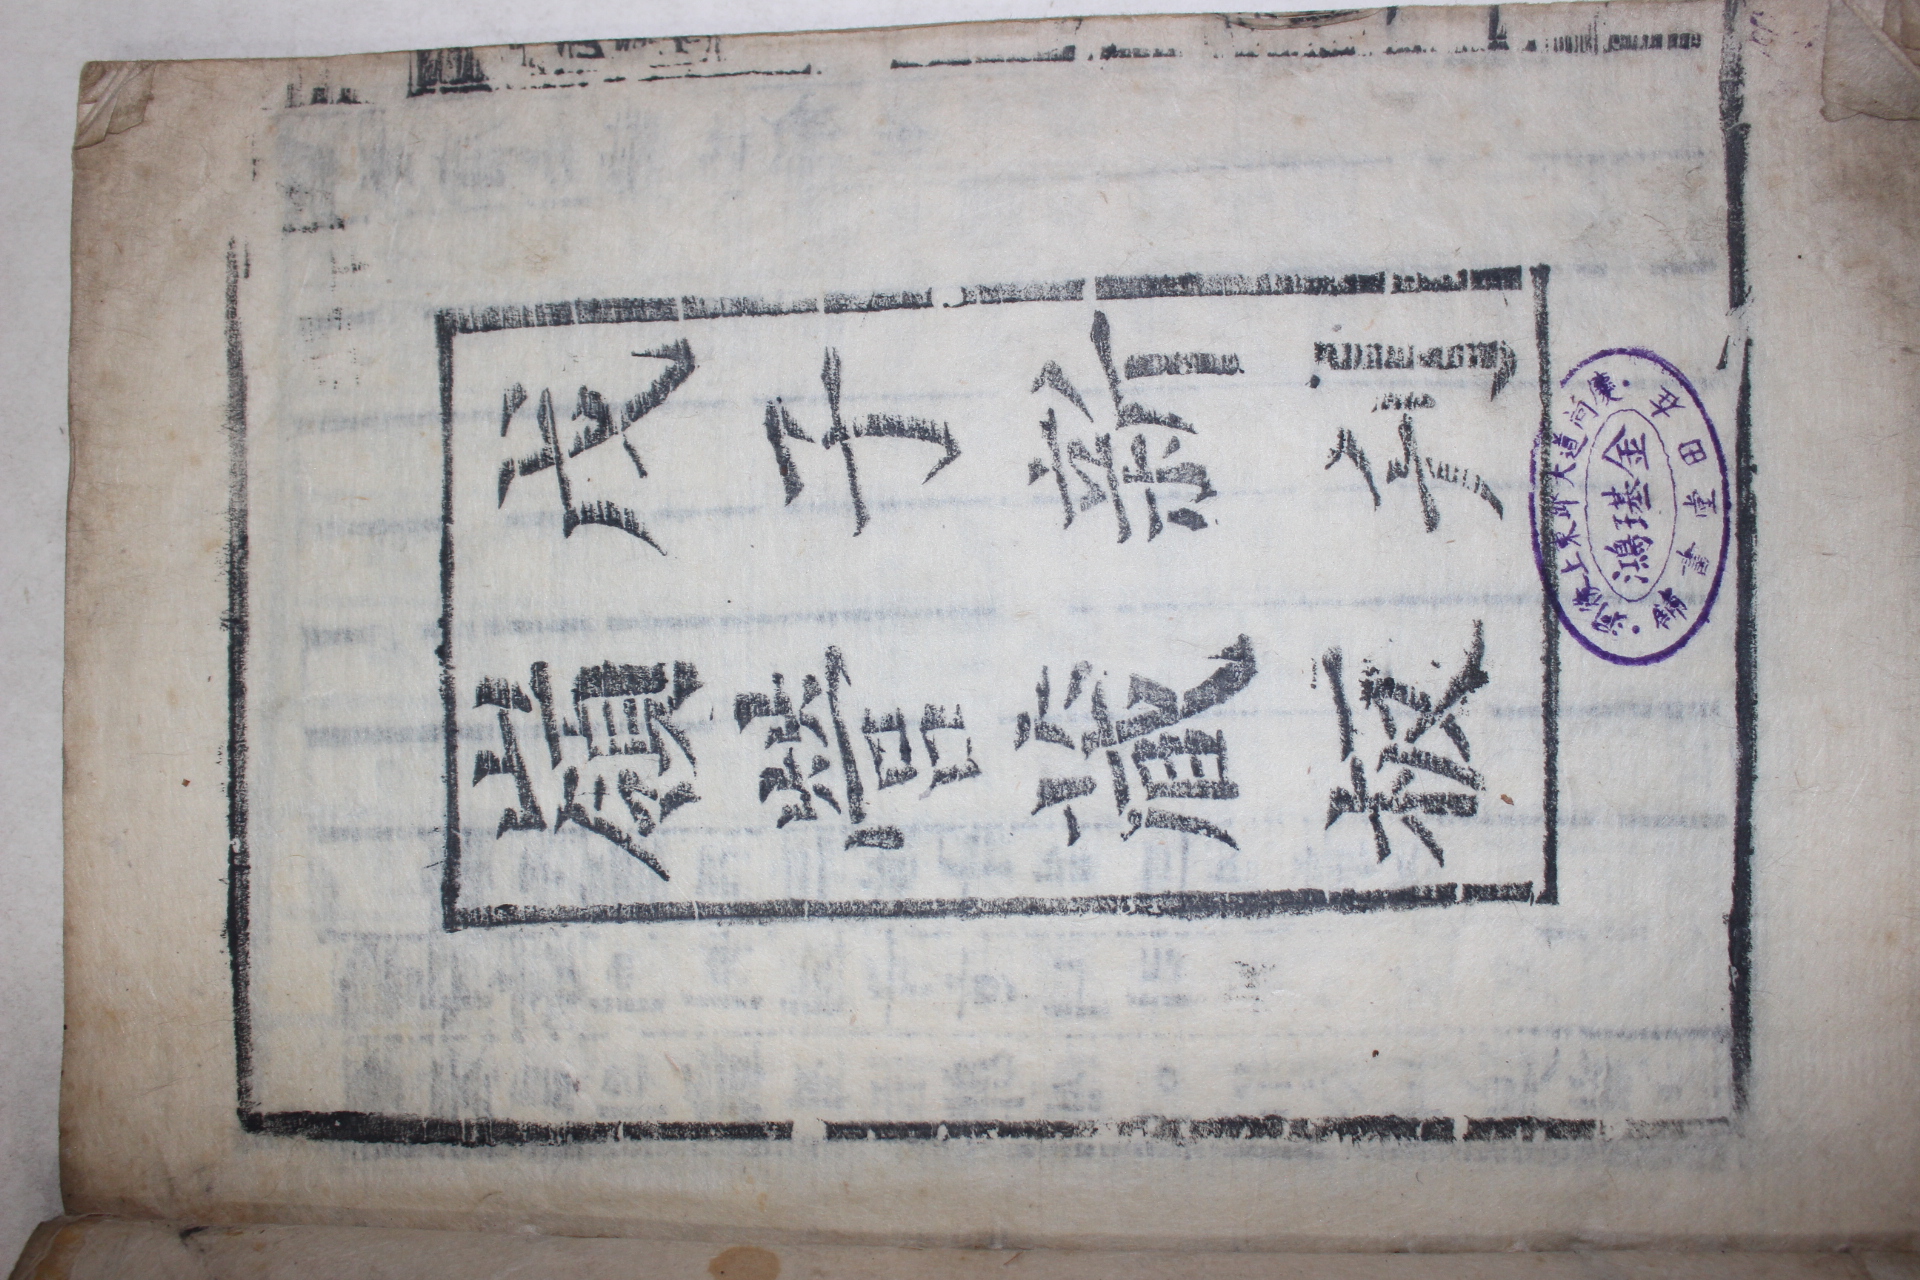 戊子新刊
嶺營藏板
慶尚道大邱東上後洞
金璂鴻
在田堂書